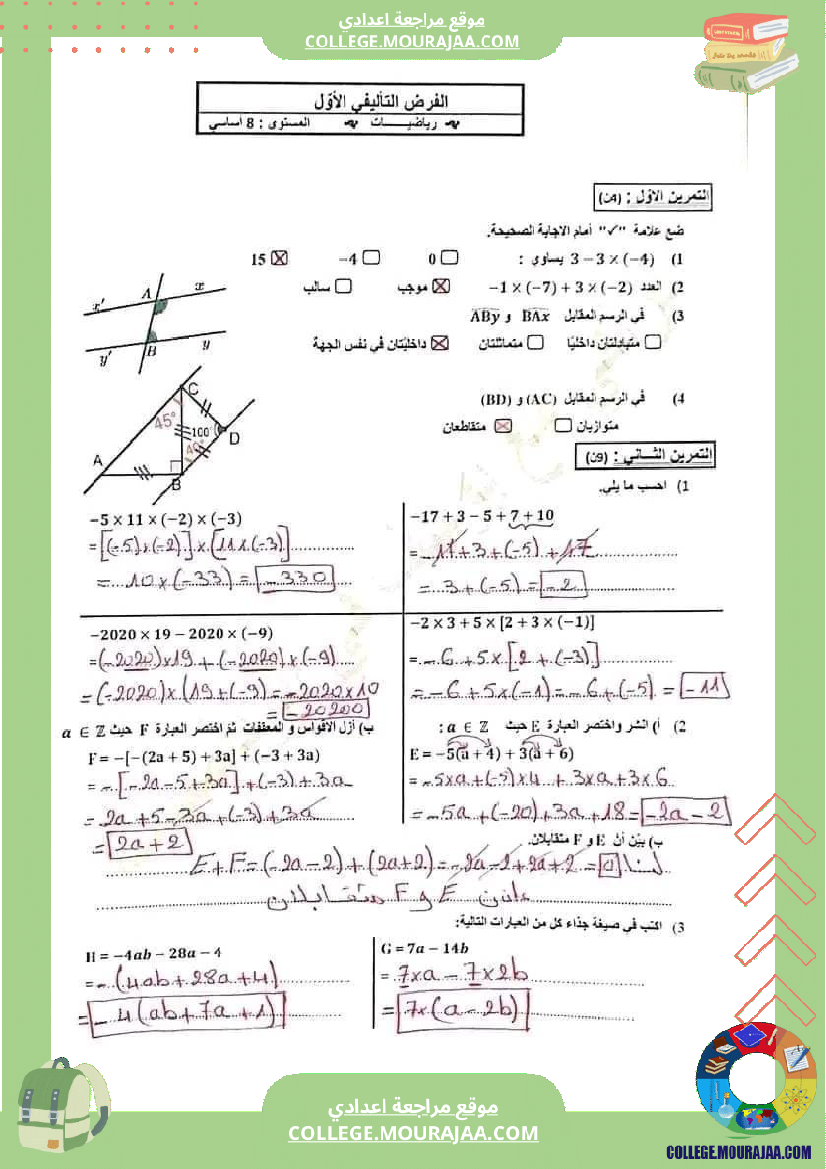 موقع مراجعة اعدادي
COLLEGE.MOURAJAA.COM
الفرض التأليفي الأوّل
رياضيـــــات المستوى : 8 أساسي
التمرين الاوّل : (4ن)
ضع علامة "✓" أمام الاجابة الصحيحة.
1) 3 − 3 × (−4) يساوي : 0 −4 15
2) العدد −1 × (−7) + 3 × (−2) موجب سالب
3) في الرسم المقابل BAx و ABy
متبادلتان داخليّا متماثلتان داخليّتان في نفس الجهة
x' A x
y' B y
4) في الرسم المقابل (AC) و (BD)
متوازيان متقاطعان
C
45° 100° D
40°
A
B
التمرين الثـــاني : (9ن)
1) احسب ما يلي.
−17 + 3 − 5 + 7 + 10
= −17 + 3 + (−5) + 17
= 3 + (−5) = −2
−5 × 11 × (−2) × (−3)
= [(−5) × (−2)] × [11 × (−3)]
= 10 × (−33) = −330
−2 × 3 + 5 × [2 + 3 × (−1)]
= −6 + 5 × [2 + (−3)]
= −6 + 5 × (−1) = −6 + (−5) = −11
−2020 × 19 − 2020 × (−9)
= (−2020) × 19 + (−2020) × (−9)
= (−2020) × (19 + (−9) = −2020 × 10
= −20200
2) أ) انشر واختصر العبارة E حيث a ∈ ℤ :
E = −5(a + 4) + 3(a + 6)
= −5×a + (−5)×4 + 3×a + 3×6
= −5a + (−20) + 3a + 18 = −2a − 2
ب) أزل الأقواس و المعقفات ثمّ اختصر العبارة F حيث a ∈ ℤ
F = −[−(2a + 5) + 3a] + (−3 + 3a)
= −[−2a − 5 + 3a] + (−3) + 3a
= 2a + 5 − 3a + (−3) + 3a
= 2a + 2
ب) بيّن أنّ E و F متقابلان.
لنا E + F = (−2a − 2) + (2a + 2) = −2a − 2 + 2a + 2 = 0
إذن E و F متقابلان
3) اكتب في صيغة جذاء كل من العبارات التالية:
G = 7a − 14b
= 7×a − 7×2b
= 7×(a − 2b)
H = −4ab − 28a − 4
= −(4ab + 28a + 4)
= −4(ab + 7a + 1)
موقع مراجعة اعدادي
COLLEGE.MOURAJAA.COM
COLLEGE.MOURAJAA.COM